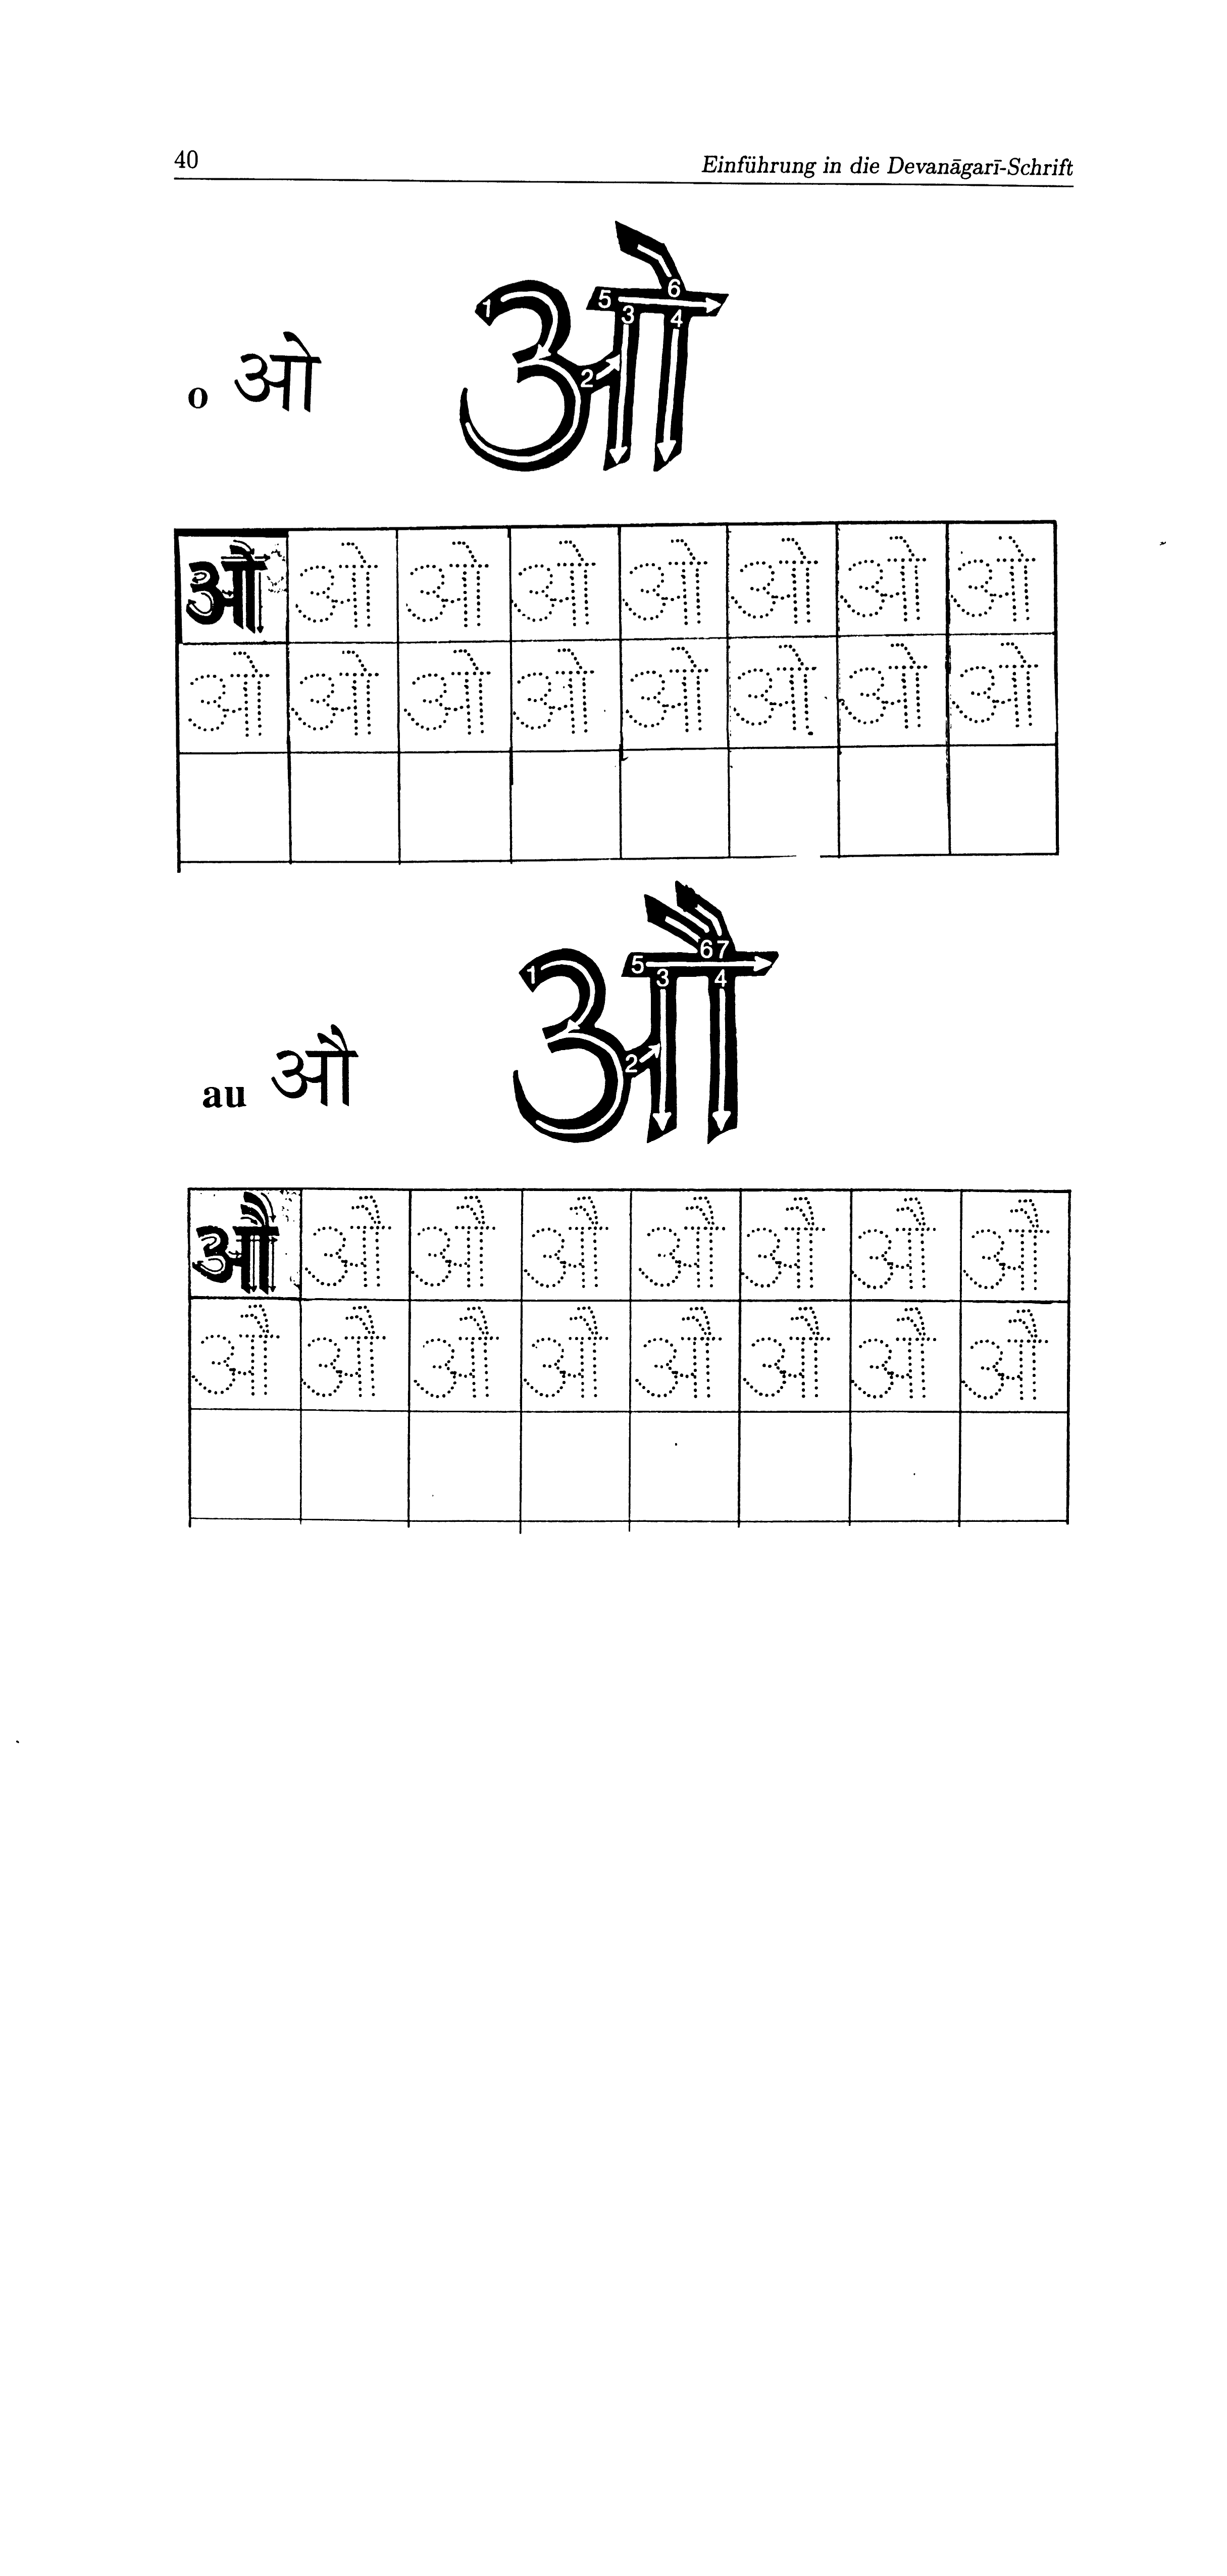 40 Einführung in die Devanāgarī-Schrift
o ओ ओ
1 2 3 4 5 6
ओ ओ ओ ओ ओ ओ ओ ओ
ओ ओ ओ ओ ओ ओ ओ ओ
au औ औ
1 2 3 4 5 6 7
औ औ औ औ औ औ औ औ
औ औ औ औ औ औ औ औ